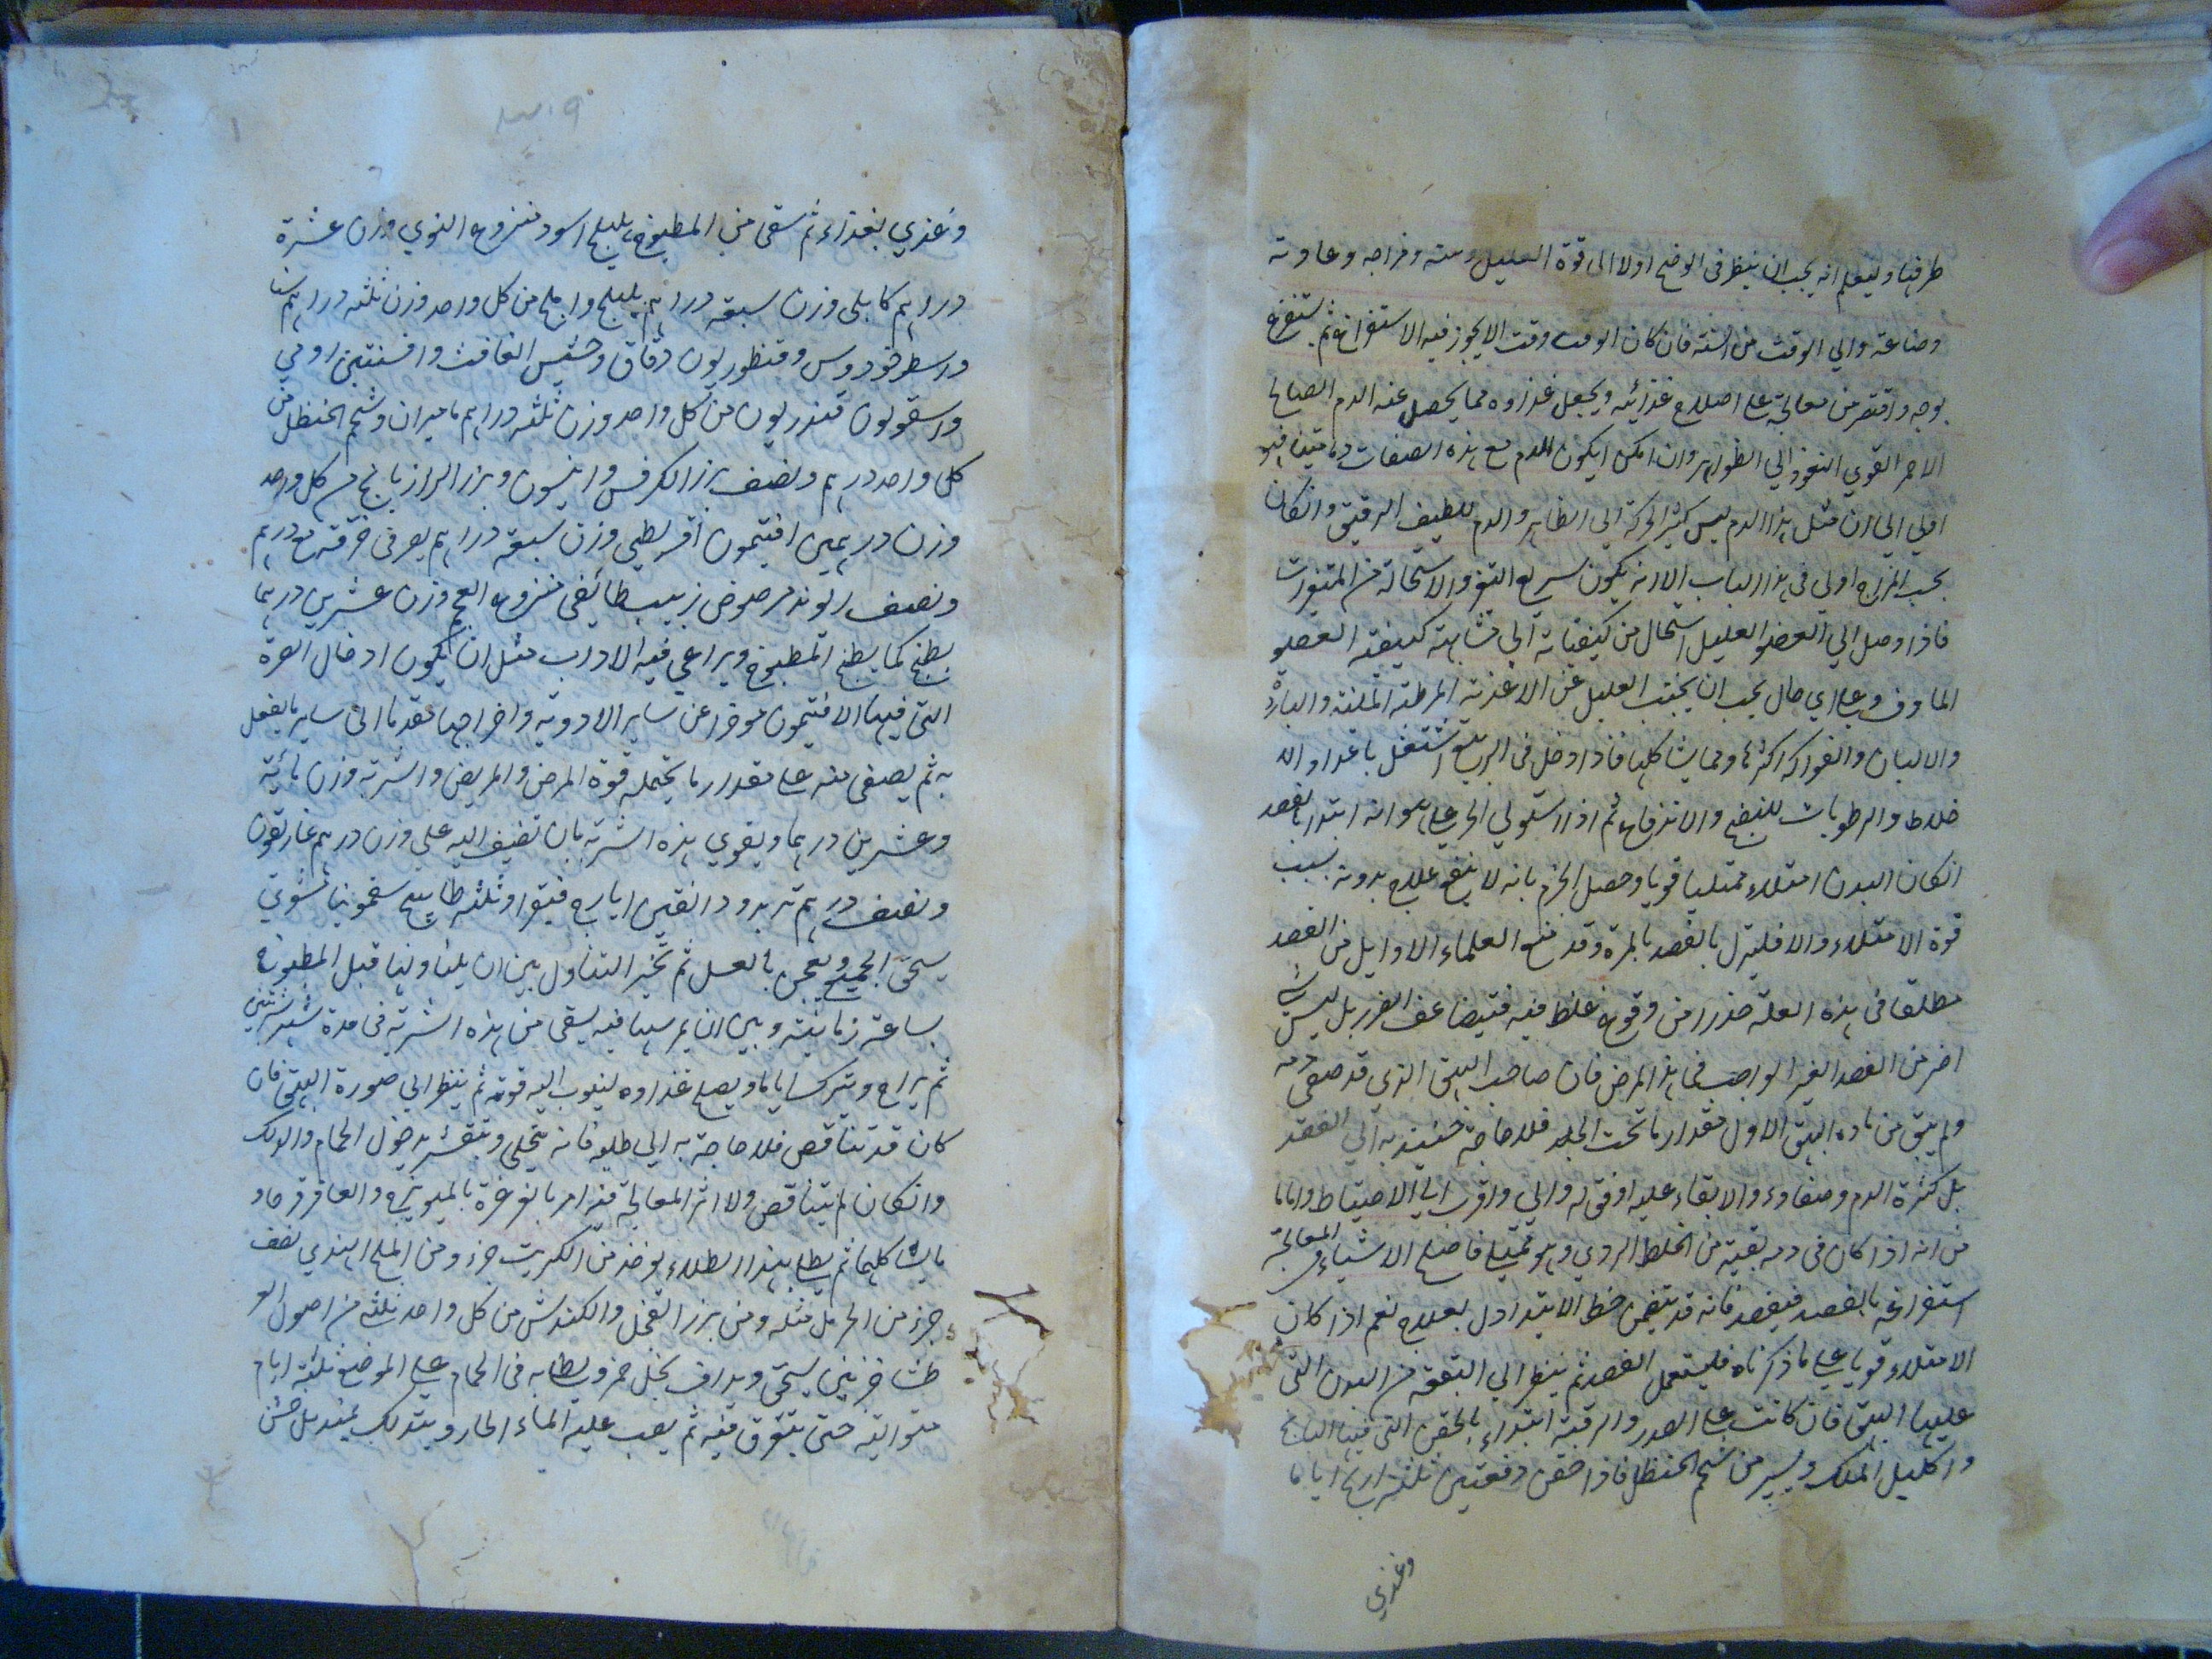 طرفها وليعلم انه يجب ان ينظر فى الوضح اولا الى قوة العليل وسنه ومزاجه وعادته
وصناعته والي الوقت من السنة فان كان الوقت وقت لا يجوز فيه الاستفراغ ثم يستفرغ
بوجه واقتصر من معالجته على اصلاح غذائيه ويجعل غذاوه مما يحصل عنه الدم الصالح
الاحمر القوي النفوذ الي الظواهر وان امكن ان يكون للدم مع هذه الصفات
اولي الي ان مثل هذا الدم ليس كثير الحركة الي الظاهر والدم اللطيف الرقيق وانكان
بحسب المزاج اولي فى هذا الباب الا انه يكون سريع التغير والاستحالة من المتغيرات
فاذا وصل الي العضو العليل استحال من كيفياته الي مشابهة كيفية العضو
الماوف وعلى اي حال يجب ان يجتنب العليل عن الاغذية المرطبة الملينة والباردة
والالبان والفواكه اكثرها ومما يشاكلها فاذا دخل فى الربيع اشتغل باعداد الا
خلاط والرطوبات للنضج والانزفاع ثم اذا استولي الحر على هوائه ابتدا بالفصد
انكان البدن امتلاء ممتليا قويا وحصل الجزم بانه لا ينفع علاج بدونه بسبب
قوة الامتلاء والا فليترك الفصد بالمرة وقد منع العلماء الاوايل من الفصد
مطلقا فى هذه العلة حذرا من وقوع غلط فيه فيتضاعف الضرر بل ليس شي
اضر من الفصد الغير الواجب فى هذا المرض فان صاحب البهق الذي قد صفى دمه
ولم يبق من ماده البهق الاول مقدار ما تحت الجلد فلا حاجة حينيذ به الي الفصد
بل كثرة الدم وصفاوه والابقاء عليه اوفق له واولي واقرب الي الاحتياط واما
من انه اذا كان فى دمه بقية من الخلط الردي وهو ممتلي فاصلح الاشياء فى المعالجة
استفراغه بالفصد فيفصد فانه قد يتضمن حفظ الابتدا دل بعلاج نعم اذا كان
الامتلاء قويا على ما ذكرناه فليستعمل الفصد ثم ينظر الي البقعة من البدن التى
عليها البهق فان كانت على الصدر والرقبة ابتداء بالحقن التى فيها البابونج
واكليل الملك ويسير من شحم الحنظل فاذا حقن دفعتين ثلثة اراح اياما
وغذي
وغذي بغذاء ثم سقى من المطبوخ هليلج اسود منزوع النوي وزن عشرة
دراهم كابلى وزن سبعة دراهم بليلج واملج من كل واحد وزن ثلثه دراهم سنا
واسطوخودوس وقنطوريون دقاق وحشيش الغافث وافسنتين رومي
واسقولون قندريون من كل واحد وزن ثلثه دراهم ماميران وشحم الحنظل من
كل واحد درهم ونصف بزر الكرفس وانيسون وبزر الرازيانج من كل واحد
وزن درهمين افتيمون اقريطي وزن سبعة دراهم يصر فى خرقة مع درهم
ونصف ريوند مرضوض زبيب طائفى منزوع العجم وزن عشرين درهما
يطبخ كما يطبخ المطبوخ ويراعي فيه الاداب مثل ان يكون ادخال الصرة
التى فيها الافتيمون موخرا عن ساير الادويه واخراجها مقدما الى ساير ما يفعل
به ثم يصفى منه على مقدار ما يحتمله قوة المرض والمريض والشربه وزن مائة
وعشرين درهما ويقوي هذه الشربة بان تضيف اليه على وزن درهم غاريقون
ونصف درهم تربد ودانقين ايارج فيقرا وثلثه طساسيج سقمونيا مشوي
يسحق الجميع ويعجن بالعسل ثم تخير التناول بين ان يتناولها قبل المطبوخ
بساعة زمانية وبين ان يمرسها فيه يسقى من هذه الشربة فى مدة شهر شربتين
ثم يراح ويترك اياما ويصلح غذاوه ليثوب اليه قوته ثم ينظر الي صورة البهق فان
كان قد تناقص فلا حاجة به الي طلوع فانه يتحلل ويتقشر بدخول الحمام والدلك
وانكان لم يتناقص ولا اثر المعالجة فيه امر بالغرغرة بالميويزج والعاقرقرحا و
ما يشاكلهما ثم يطلى بهذا الطلاء يوخذ من الكبريت جزء ومن الملح الهندي نصف
جزء من الحرمل مثله ومن بزر الفجل والكندش من كل واحد ثلثه من اصول العر
طنيثا جزئين يسحق ويداف بخل خمر ويطلا به فى الحمام على الموضع ثلثة ايام
متواليه حتى يتعرق فيه ثم يصب عليه الماء الحار ويتدلك بمنديل خشن